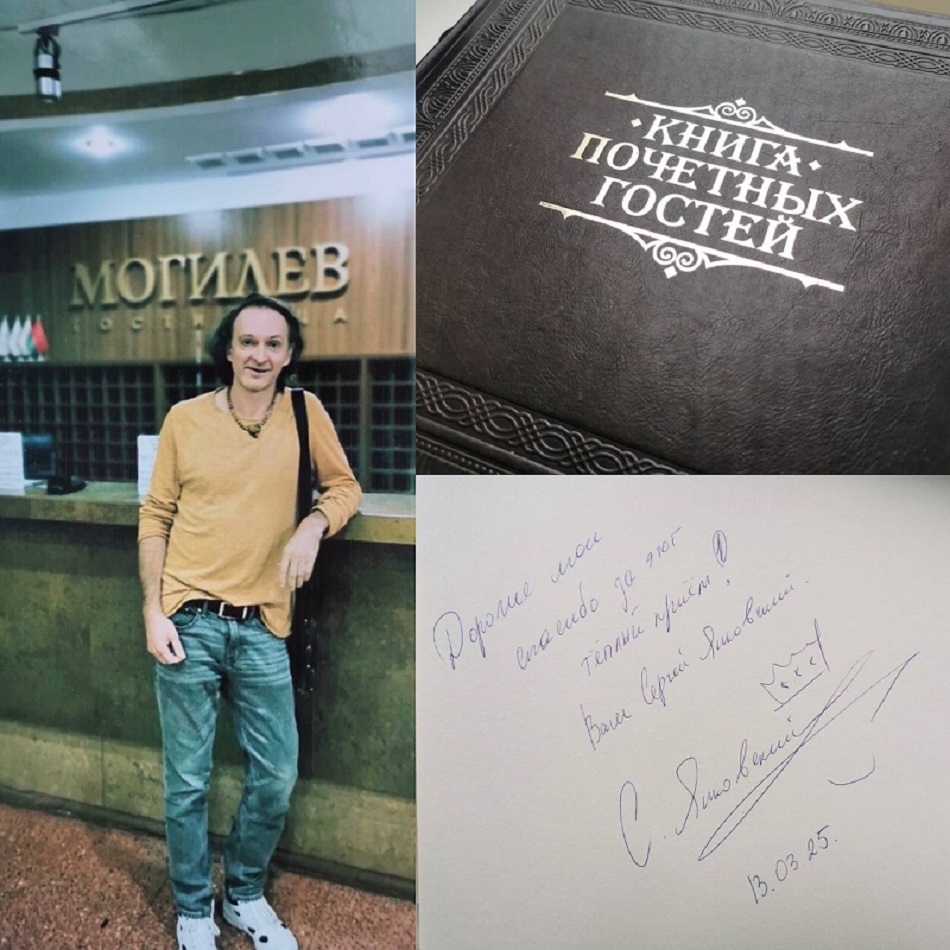 МОГИЛЕВ
ГОСТИНИЦА
·КНИГА·
ПОЧЕТНЫХ
ГОСТЕЙ
Дорогие мои
спасибо за этот
тёплый приём!
Ваш Сергей Яковский.
С. Яковский
13.03.25.